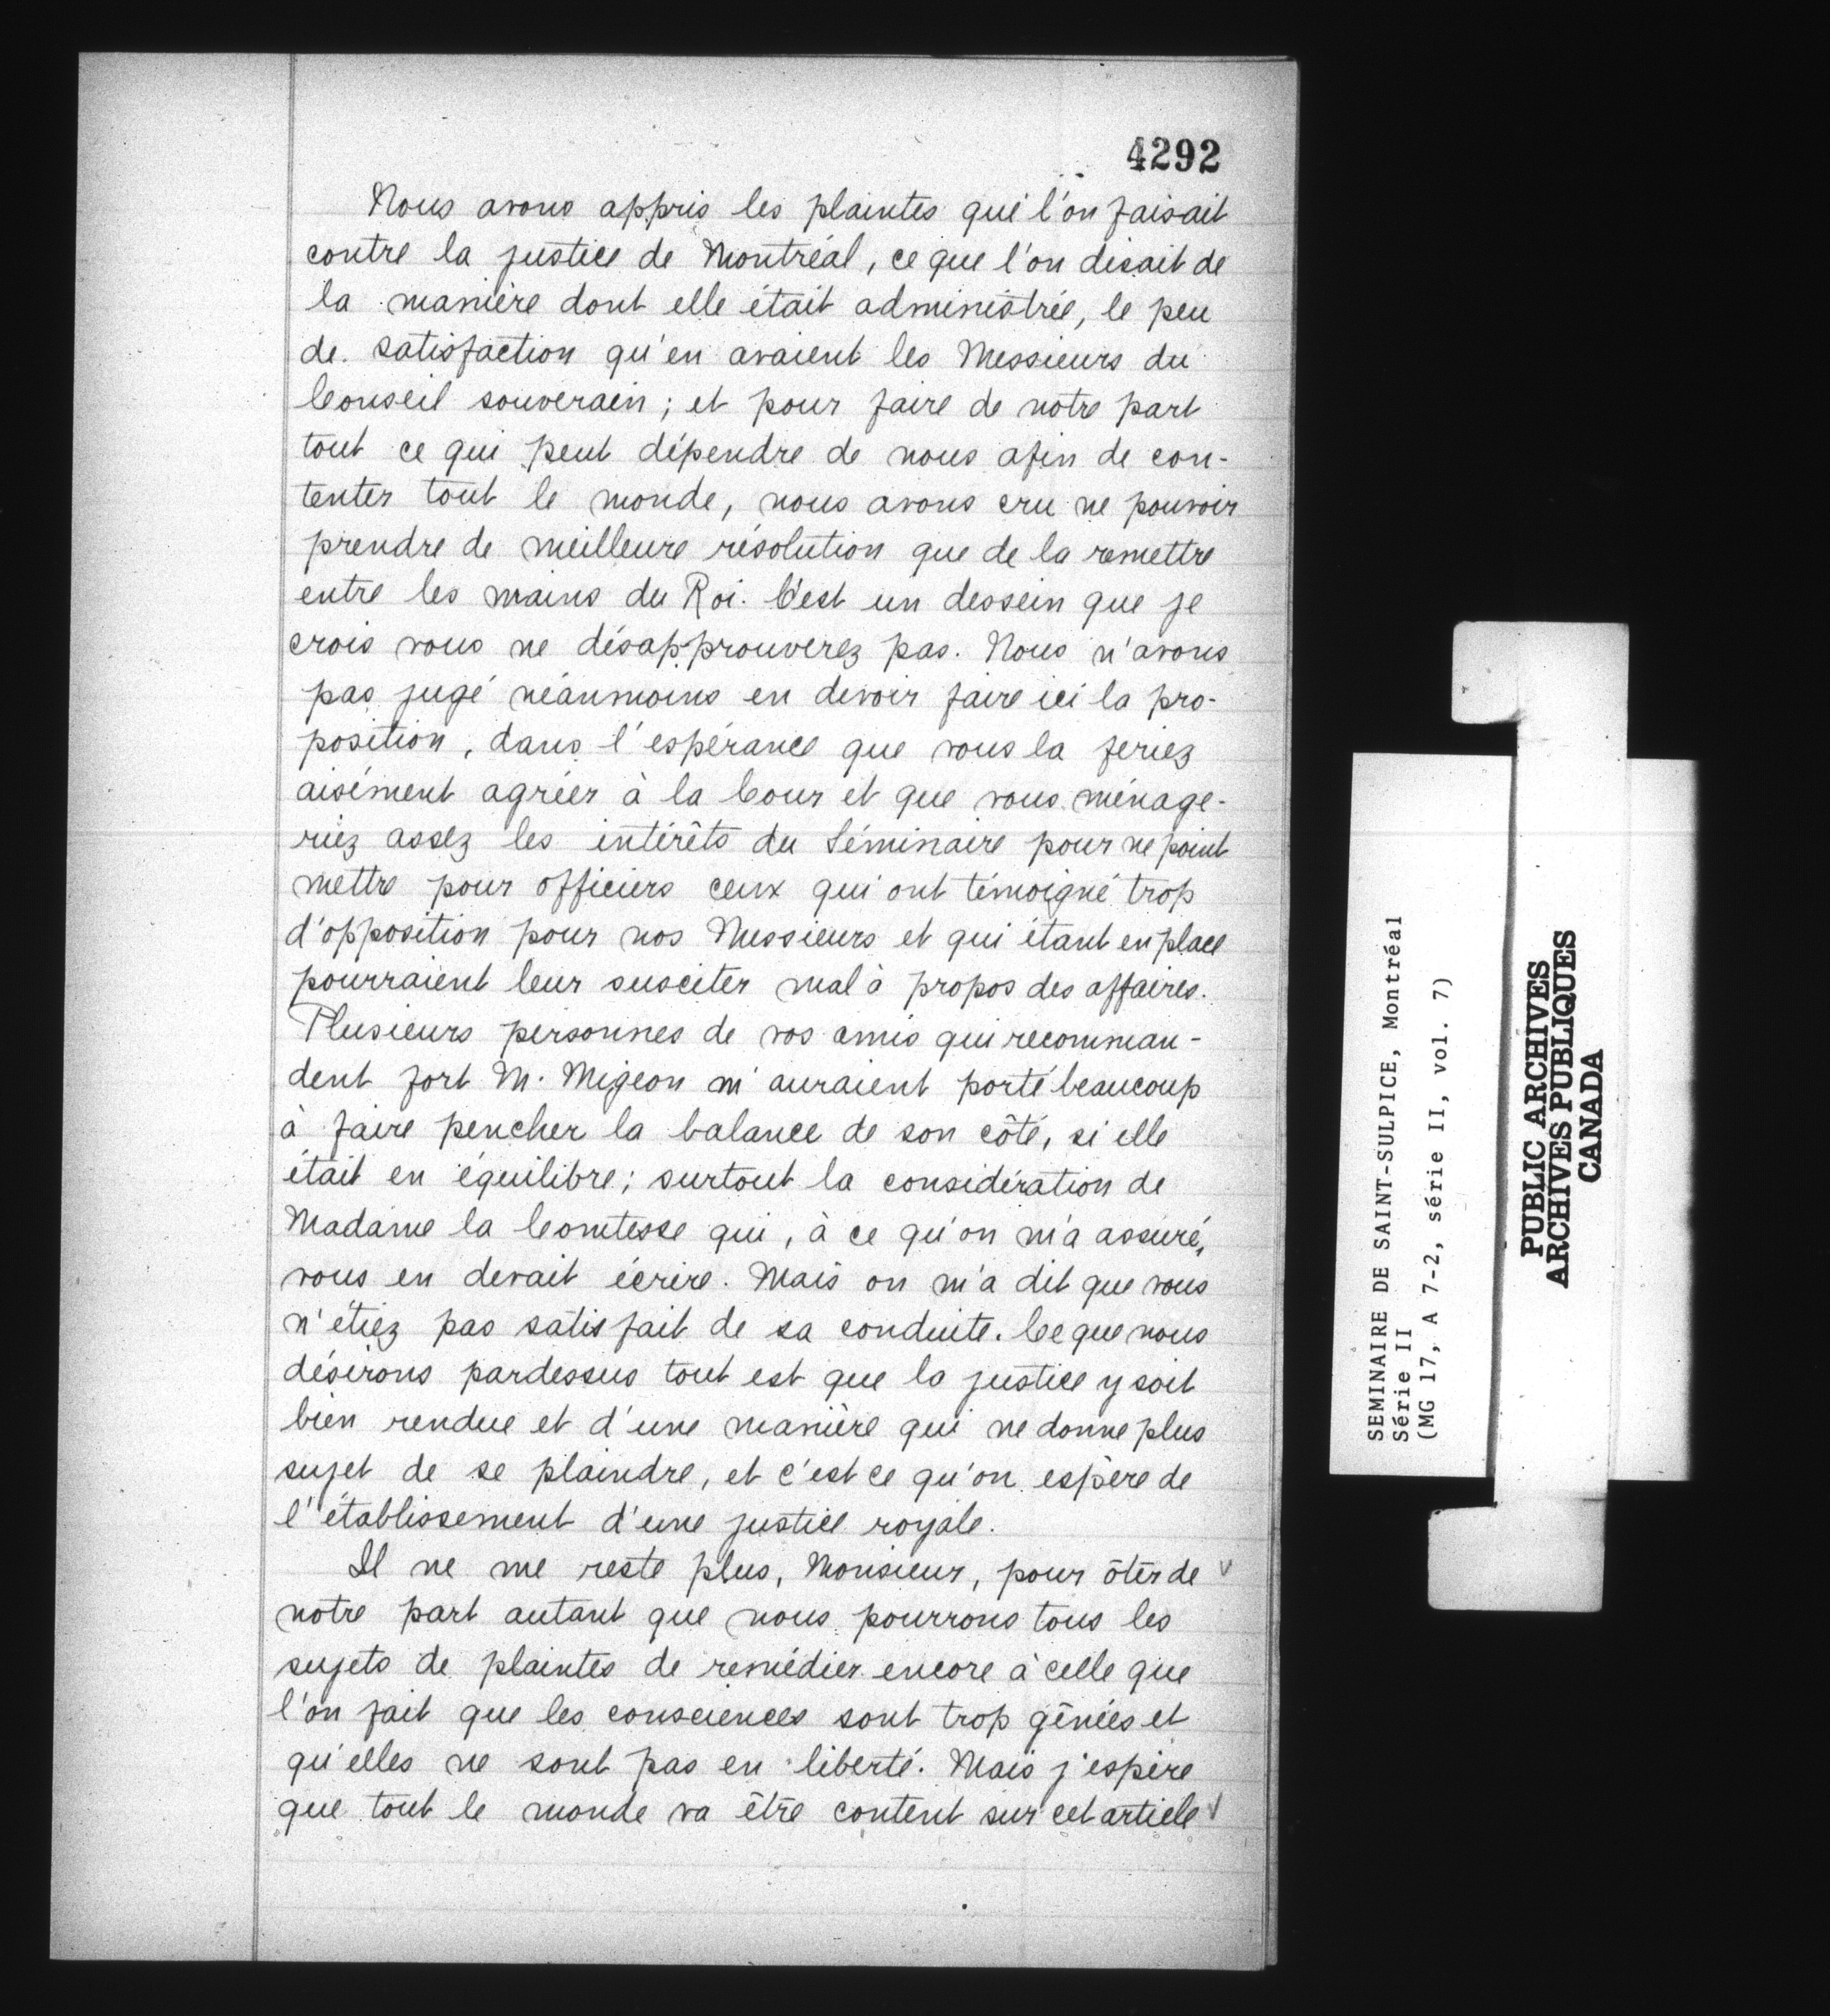 4292
Nous avons appris les plaintes que l'on faisait
contre la justice de Montréal, ce que l'on disait de
la manière dont elle était administrée, le peu
de satisfaction qu'en avaient les Messieurs du
Conseil souverain ; et pour faire de notre part
tout ce qui peut dépendre de nous afin de con-
tenter tout le monde, nous avons cru ne pouvoir
prendre de meilleure résolution que de la remettre
entre les mains du Roi. C'est un dessein que je
crois vous ne désapprouverez pas. Nous n'avons
pas jugé néanmoins en devoir faire ici la pro-
position, dans l'espérance que vous la feriez
aisément agréer à la Cour et que vous ménage-
riez assez les intérêts du Séminaire pour ne point
mettre pour officiers ceux qui ont témoigné trop
d'opposition pour nos Messieurs et qui étant en place
pourraient leur susciter mal à propos des affaires.
Plusieurs personnes de vos amis qui recomman-
dent fort M. Migeon m'auraient porté beaucoup
à faire pencher la balance de son côté, si elle
était en équilibre ; surtout la considération de
Madame la Comtesse qui, à ce qu'on m'a assuré,
vous en devait écrire. Mais on m'a dit que vous
n'étiez pas satisfait de sa conduite. Ce que nous
désirons pardessus tout est que la justice y soit
bien rendue et d'une manière qui ne donne plus
sujet de se plaindre, et c'est ce qu'on espère de
l'établissement d'une justice royale.
Il ne me reste plus, Monsieur, pour ôter de
notre part autant que nous pourrons tous les
sujets de plaintes de remédier encore à celle que
l'on fait que les consciences sont trop gênées et
qu'elles ne sont pas en liberté. Mais j'espère
que tout le monde va être content sur cet article
SEMINAIRE DE SAINT-SULPICE, Montréal
Série II
(MG 17, A 7-2, série II, vol. 7)
PUBLIC ARCHIVES
ARCHIVES PUBLIQUES
CANADA